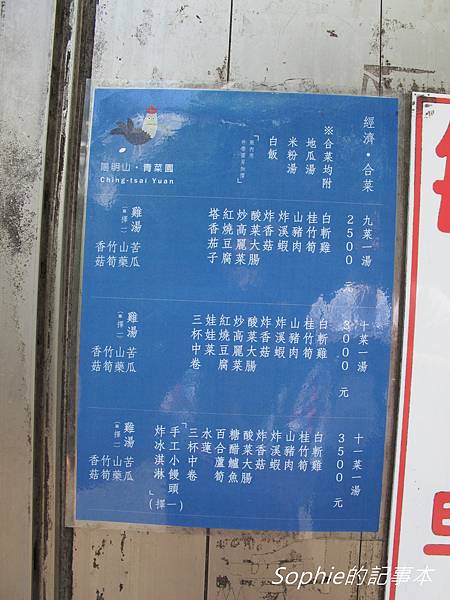 經濟・合菜
※合菜均附
地瓜湯
米粉湯
白飯
陽明山・青菜園
Ching-tsai Yuan
九菜一湯
2500元
白斬雞
桂竹筍
山豬肉
炸溪蝦
炸香菇
酸菜大腸
炒高麗菜
紅燒豆腐
塔香茄子
雞湯
(擇一)
苦瓜
山藥
竹筍
香菇
十菜一湯
3000元
白斬雞
桂竹筍
山豬肉
炸溪蝦
炸香菇
酸菜大腸
炒高麗菜
紅燒豆腐
娃娃菜
三杯中卷
雞湯
(擇一)
苦瓜
山藥
竹筍
香菇
十一菜一湯
3500元
白斬雞
桂竹筍
山豬肉
炸溪蝦
炸香菇
酸菜大腸
糖醋鱸魚
百合蘆筍
水蓮
三杯中卷
「手工小饅頭
炸冰淇淋」(擇一)
雞湯
(擇一)
苦瓜
山藥
竹筍
香菇
Sophie的記事本